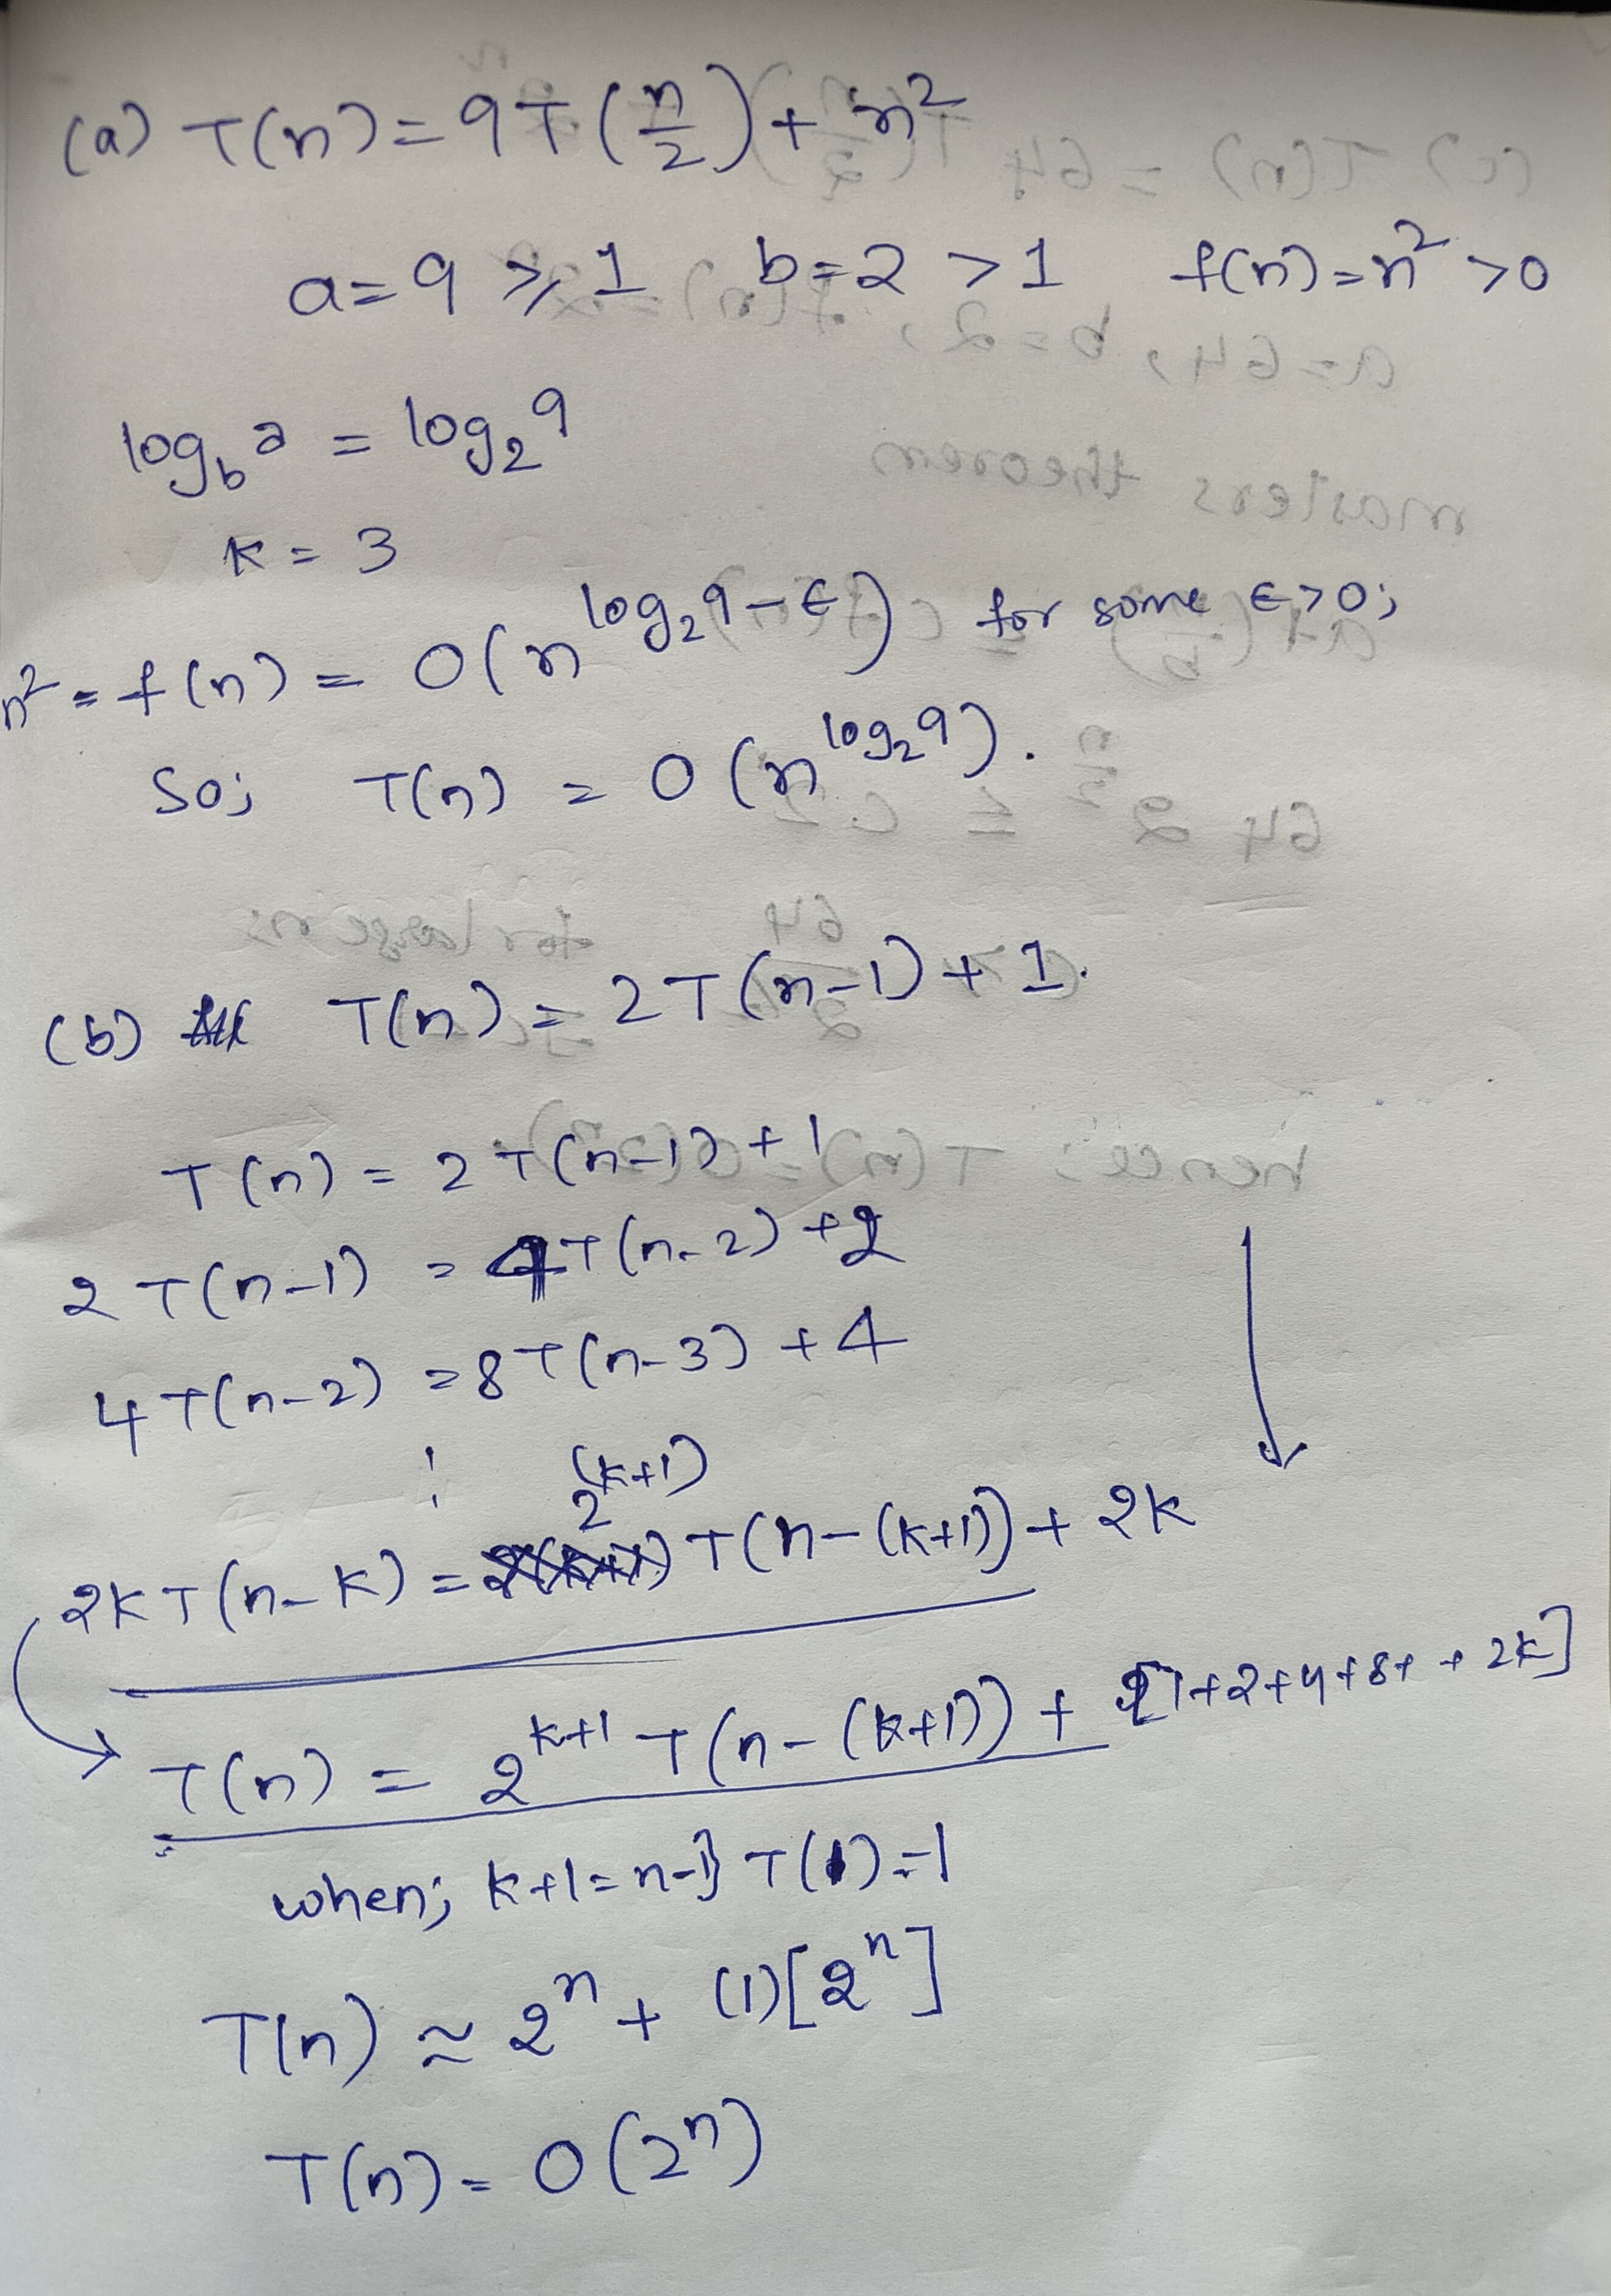 (a) T(n) = 9T(n/2) + n²
a = 9 ⩾ 1 b = 2 > 1 f(n) = n² > 0
log_b a = log₂ 9
K = 3
n² = f(n) = O(n^(log₂ 9 - ε)) for some ε > 0;
So; T(n) = O(n^(log₂ 9)).
(b) T(n) = 2T(n-1) + 1.
T(n) = 2T(n-1) + 1
2T(n-1) = 4T(n-2) + 2
4T(n-2) = 8T(n-3) + 4
⋮
2K T(n-K) = 2^(K+1) T(n-(K+1)) + 2K
T(n) = 2^(K+1) T(n-(K+1)) + [1+2+4+8+ + 2K]
when; K+1 = n-1; T(1) = 1
T(n) ≈ 2ⁿ + (1)[2ⁿ]
T(n) = O(2ⁿ)